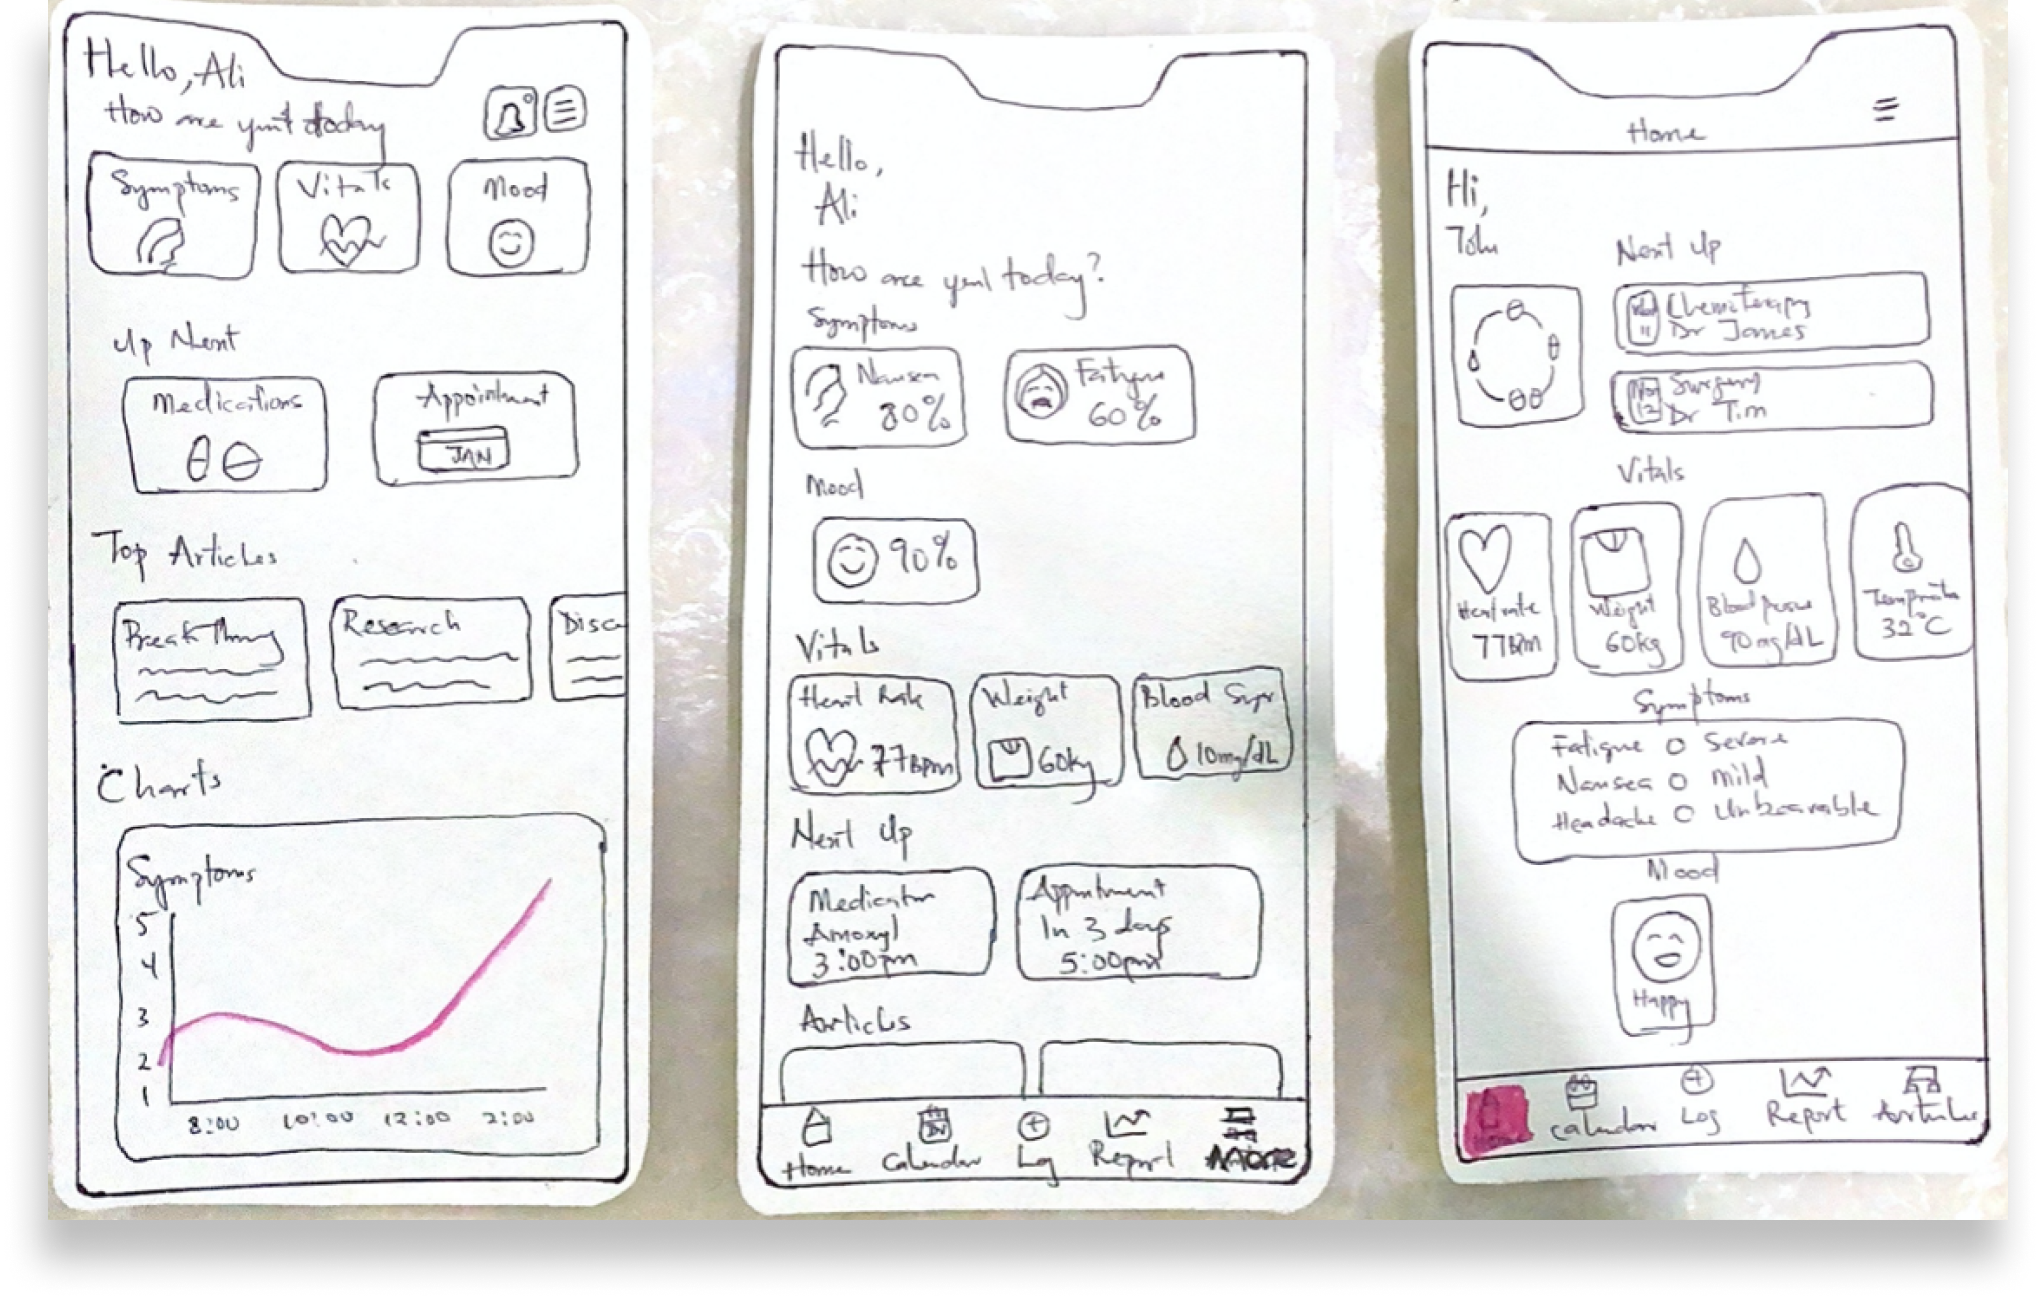 Hello, Ali
How are you today
Symptoms
Vitals
Mood
Up Next
Medications
Appointment
JAN
Top Articles
Research
Disc
Charts
Symptoms
5
4
3
2
1
8:00
10:00
12:00
2:00
Hello,
Ali
How are you today?
Symptoms
Nausea
80%
Fatigue
60%
Mood
90%
Vitals
Heart Rate
77BPM
Weight
60kg
Blood
10mg/dL
Next Up
Medication
Amoxyl
3:00pm
Appointment
In 3 days
5:00pm
Articles
Home
Calendar
Log
Report
More
Home
Hi,
Next Up
Chemoterapy
Dr James
Nov
12
Surgery
Dr Tim
Vitals
Heart rate
77BPM
Weight
60kg
Blood
90mg/dL
32°C
Symptoms
Fatigue Severe
Nausea mild
Headache Unbearable
Mood
Happy
Calendar
Log
Report
Articles